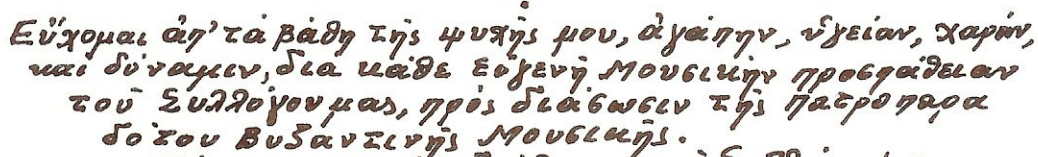 Εὔχομαι ἀπ' τὰ βάθη τῆς ψυχῆς μου, ἀγάπην, ὑγείαν, χαράν,
καὶ δύναμιν, δια κάθε εὐγενῆ Μουσικὴν προσπάθειαν
τοῦ Συλλόγου μας, πρὸς διάσωσιν τῆς πατροπαρα
δότου Βυζαντινῆς Μουσικῆς.